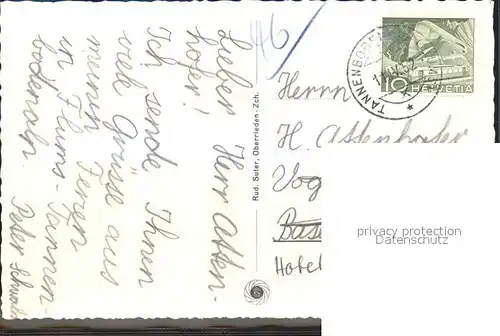 46
Lieber Herr Atten-
hofer!
Ich sende Ihnen
viele Grüsse aus
meinen Ferien
in Flums-Tannen-
bodenalp.
Peter Schwa
Rud. Suter, Oberrieden-Zch.
10 HELVETIA
TANNENBODEN
Herrn
H. Attenhofer
Vog
Base
Hotel
privacy protection
Datenschutz